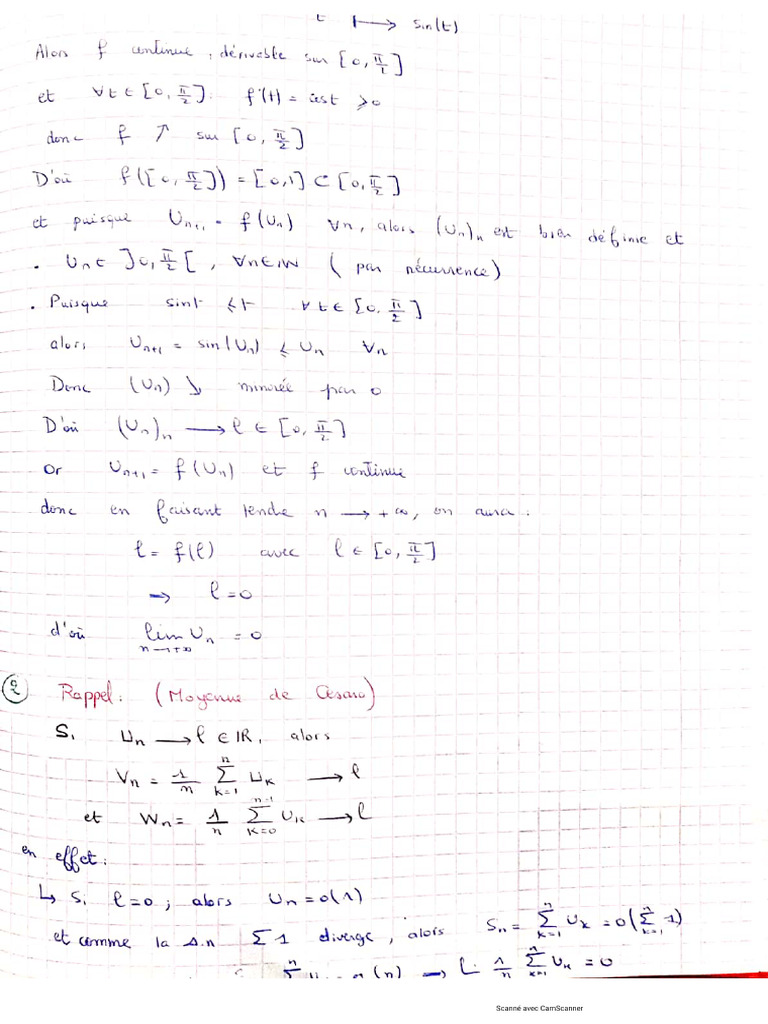 t ⟼ sin(t)
Alors f continue, dérivable sur [0, π/2]
et ∀t ∈ [0, π/2] f'(t) = cost ⩾ 0
donc f ↗ sur [0, π/2]
D'où f([0, π/2]) = [0,1] ⊂ [0, π/2]
et puisque Un+1 = f(Un) ∀n, alors (Un)n est bien définie et
. Un ∈ ]0, π/2[ , ∀n∈IN (par récurrence)
. Puisque sint ⩽ t ∀t ∈ [0, π/2]
alors Un+1 = sin(Un) ⩽ Un ∀n
Donc (Un) ↘ minorée par 0
D'où (Un)n ⟶ l ∈ [0, π/2]
Or Un+1 = f(Un) et f continue
donc en faisant tendre n ⟶ +∞, on aura :
l = f(l) avec l ∈ [0, π/2]
→ l = 0
d'où lim n→+∞ Un = 0
② Rappel : (Moyenne de Césaro)
Si Un ⟶ l ∈ IR, alors
Vn = 1/n ∑_{k=1}^{n} Uk ⟶ l
et Wn = 1/n ∑_{k=0}^{n-1} Uk ⟶ l
en effet :
↳ Si l=0 ; alors Un = o(1)
et comme la s.n ∑1 diverge, alors Sn = ∑_{k=1}^{n} Uk = o(∑_{k=1}^{n} 1)
= o(n) → 1/n ∑_{k=1}^{n} Uk = 0
Scanné avec CamScanner